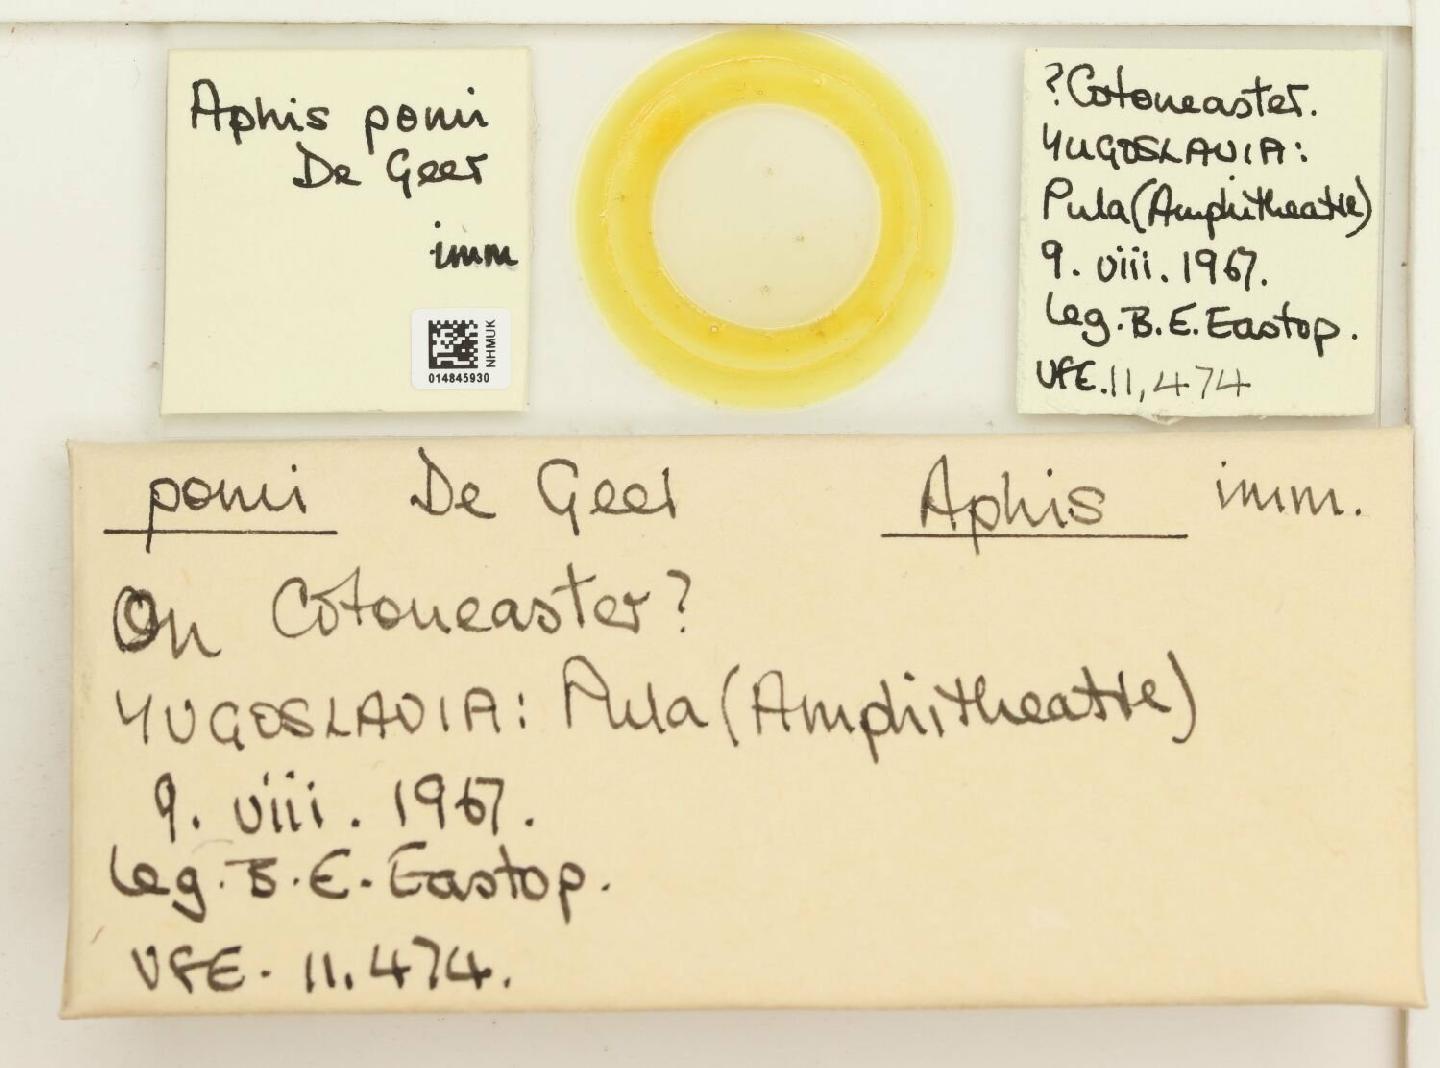 Aphis pomi
De Geer
imm
NHMUK
014845930
?Cotoneaster.
YUGOSLAVIA:
Pula (Amphitheatre)
9. viii. 1967.
Leg. B. E. Eastop.
VFE. 11,474
pomi De Geer Aphis imm.
On Cotoneaster?
YUGOSLAVIA: Pula (Amphitheatre)
9. viii. 1967.
Leg. B. E. Eastop.
VFE. 11.474.